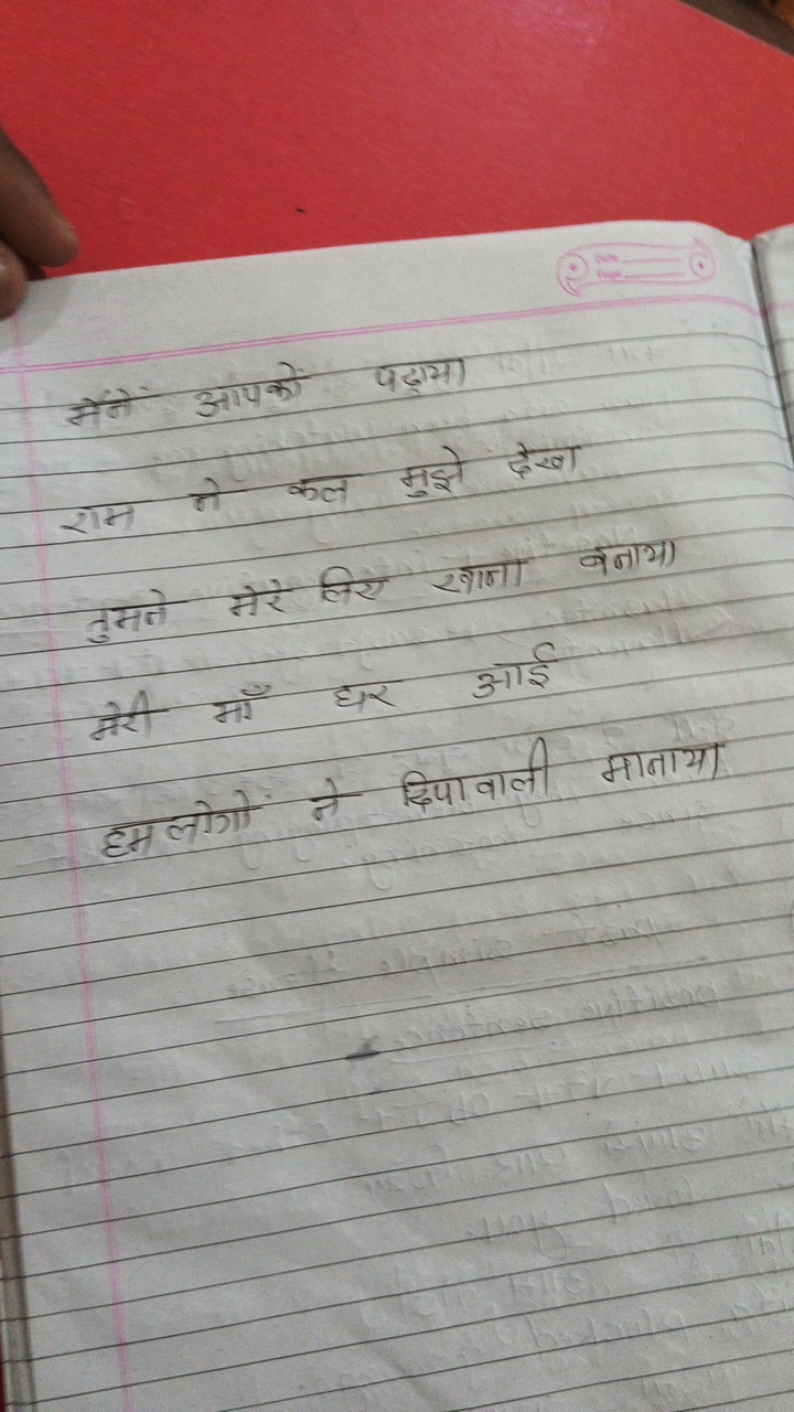 Date
Page
मैंनें आपकों पढ़ाया
राम ने कल मुझे देखा
तुमने मेरे लिए खाना बनाया
मेरी माँ घर आई
हम लोगों ने दिपावाली मानाया